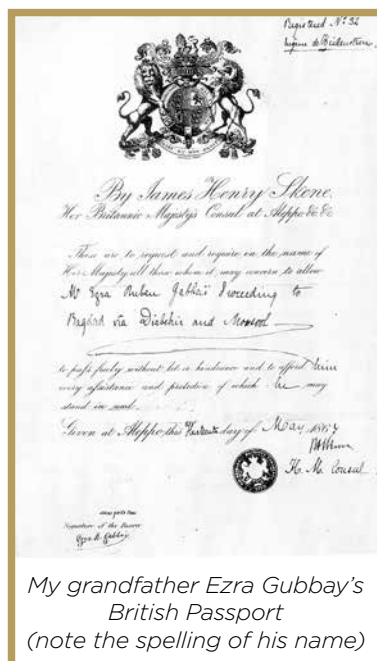 Registered No. 32
Eugène de
By James Henry Skene,
Her Britannic Majesty's Consul at Aleppo &c &c
These are to request and require in the name of
Her Majesty all those whom it may concern to allow
Mr Ezra Ruben Gabbai Proceeding to
Bagdad via Diabekir and Mousool
to pass freely without let or hindrance and to afford him
every assistance and protection of which he may
stand in need.
Given at Aleppo, this day of May, 185
H. M. Consul
Signature of the Bearer
Ezra R. Gabbay
My grandfather Ezra Gubbay's
British Passport
(note the spelling of his name)